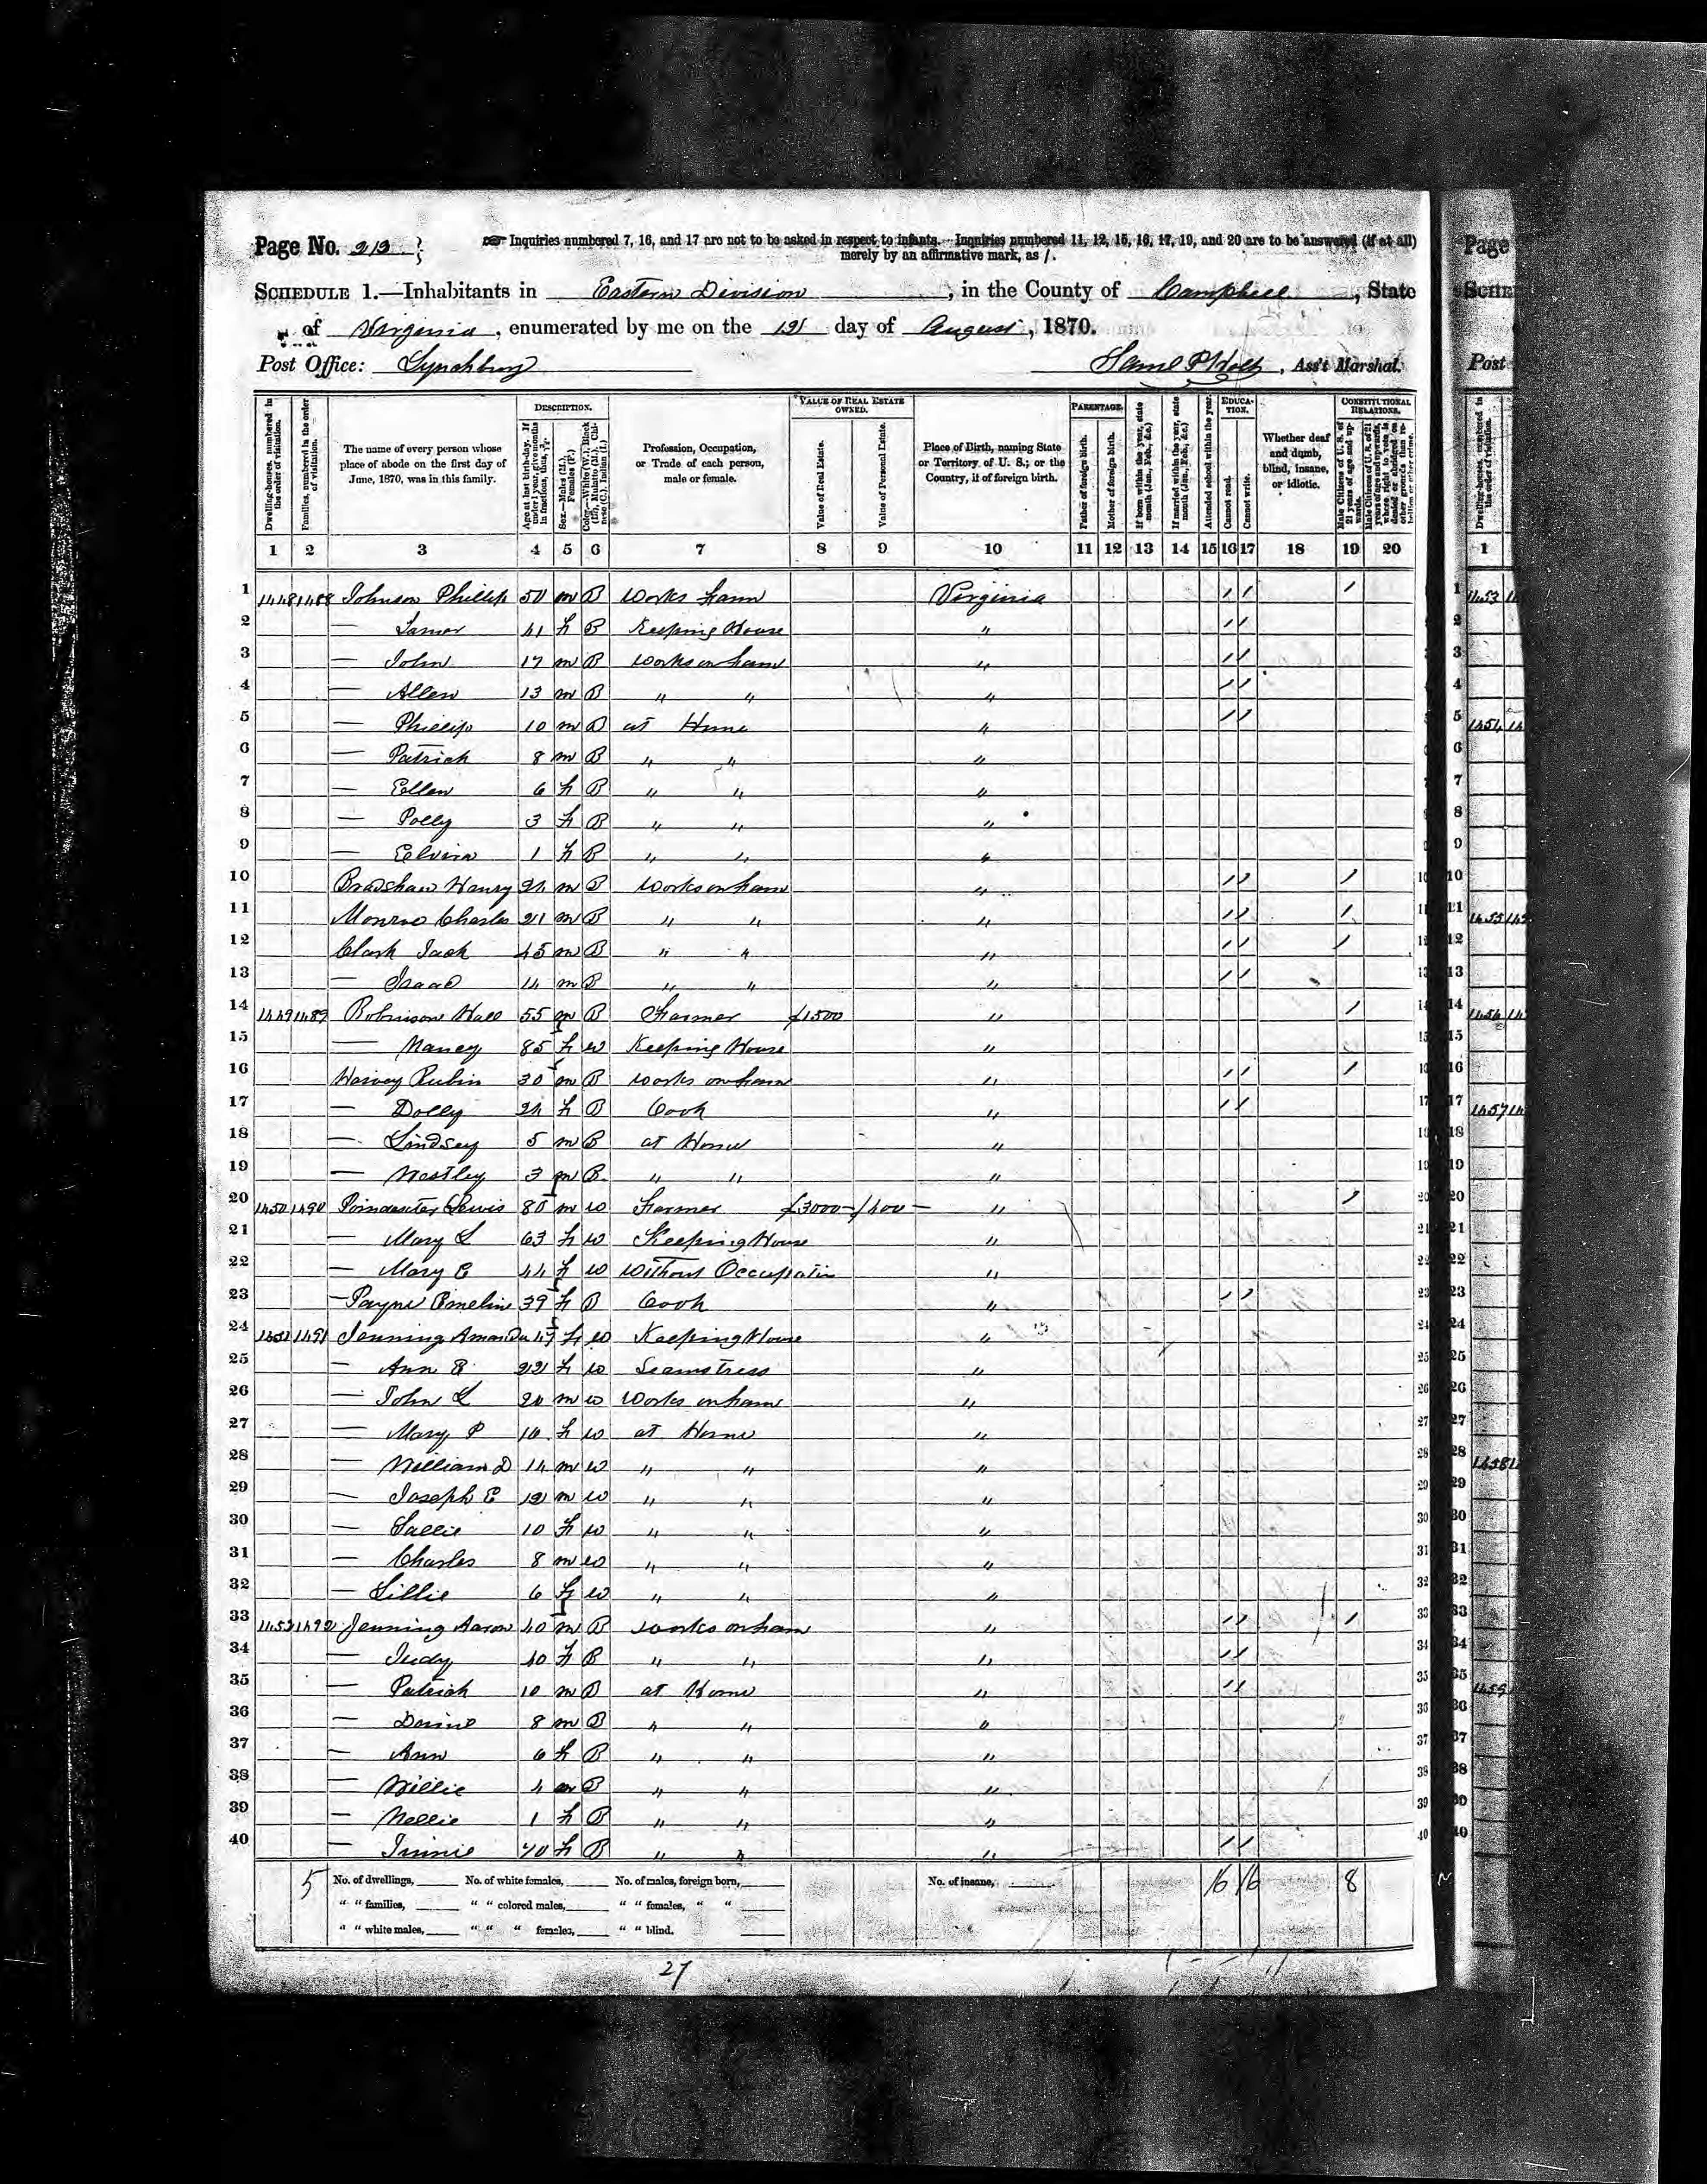 Page No. 213
Inquiries numbered 7, 16, and 17 are not to be asked in respect to infants. Inquiries numbered 11, 12, 15, 16, 17, 19, and 20 are to be answered (if at all)
merely by an affirmative mark, as /.
SCHEDULE 1.—Inhabitants in Eastern Division, in the County of Campbell, State
of Virginia, enumerated by me on the day of August, 1870.
Post Office: Lynchburg
Ass't Marshal.
DESCRIPTION. VALUE OF REAL ESTATE OWNED. PARENTAGE. EDUCATION. CONSTITUTIONAL RELATIONS.
Dwelling-houses, numbered in the order of visitation.
Families, numbered in the order of visitation.
The name of every person whose place of abode on the first day of June, 1870, was in this family.
Age at last birth-day. If under 1 year, give months in fractions, thus, 3/12
Sex.—Males (M.), Females (F.)
Color.—White (W.), Black (B.), Mulatto (M.), Chinese (C.), Indian (I.)
Profession, Occupation, or Trade of each person, male or female.
Value of Real Estate.
Value of Personal Estate.
Place of Birth, naming State or Territory of U. S.; or the Country, if of foreign birth.
Father of foreign birth.
Mother of foreign birth.
If born within the year, state month (Jan., Feb., &c.)
If married within the year, state month (Jan., Feb., &c.)
Attended school within the year.
Cannot read.
Cannot write.
Whether deaf and dumb, blind, insane, or idiotic.
Male Citizens of U. S. of 21 years of age and upwards.
Male Citizens of U. S. of 21 years of age and upwards, where right to vote is denied or abridged on other grounds than rebellion or other crime.
1 2 3 4 5 6 7 8 9 10 11 12 13 14 15 16 17 18 19 20
1 1448 1488 Johnson Phillip 50 m B Works Farm Virginia / / / 1
2 — 41 f B Keeping House " / / 2
3 — John 17 m B Works on farm " / / 3
4 — Allen 13 m B " " " / / 4
5 — Phillip 10 m B at Home " / / 5
6 — Patrick 8 m B " " " 6
7 — Ellen 6 f B " " " 7
8 — Polly 3 f B " " " 8
9 — Eelvira 1 f B " " " 9
10 Bradshaw Henry 24 m B Works on farm " / / / 10
11 Monroe Charles 21 m B " " " / / / 11
12 Clark Jack 45 m B " " " / / / 12
13 — Isaac 14 m B " " " / / 13
14 1449 1489 Robinson Hall 55 m B Farmer $1500 " / 14
15 — Nancy 85 f W Keeping House " 15
16 Harvey Rubin 30 m B works on farm " / / / 16
17 — Dolly 24 f B Cook " / / 17
18 — Lindsey 5 m B at Home " 18
19 — Westley 3 m B " " " 19
20 1450 1490 Poindexter Lewis 80 m W Farmer $3000 — /400 — " / 20
21 — Mary L 63 f W Keeping House " 21
22 — Mary E 44 f W Without Occupatin " 22
23 — Payne Emeline 39 f B Cook " / / 23
24 1451 1491 Jenning Amanda 47 f W Keeping House " 24
25 — Ann 22 f W Seamstress " 25
26 — John L 20 m W Works on farm " 26
27 — Mary P 16 f W at Home " 27
28 — William D 14 m W " " " 28
29 — Joseph E 12 m W " " " 29
30 — Sallie 10 f W " " " 30
31 — Charles 8 m W " " " 31
32 — Lillie 6 f W " " " 32
33 1452 1492 Jenning Aaron 40 m B works on farm " / / / 33
34 — Judy 40 f B " " " / / 34
35 — Patrick 10 m B at Home " / / 35
36 — 8 m B " " " 36
37 — Ann 6 f B " " " 37
38 — Willie 4 m B " " " 38
39 — Nellie 1 f B " " " 39
40 — Jinnie 70 f B " " " / / 40
5 No. of dwellings, No. of white females, No. of males, foreign born, No. of insane, 16 16 8
" " families, " " colored males, " " females, " "
" " white males, " " " females, " " blind.
27
Page
SCHE
Post
Dwelling-houses, numbered in the order of visitation.
1
1 1453
2
3
4
5 1454
6
7
8
9
10
11 1455
12
13
14 1456
15
16
17 1457
18
19
20
21
22
23
24
25
26
27
28 1458
29
30
31
32
33
34
35 1459
36
37
38
39
40